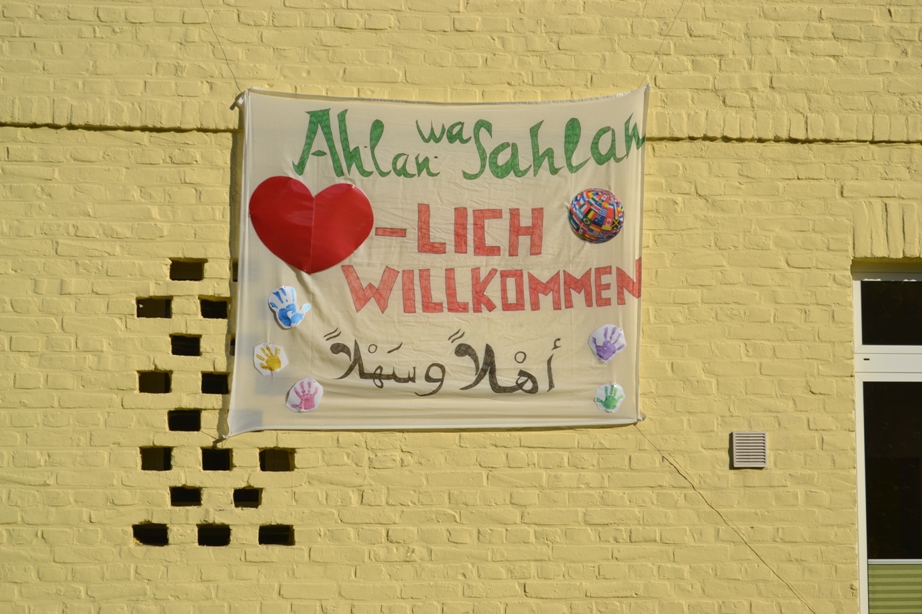 Ahlan wa Sahlan
-LICH
WILLKOMMEN
أهْلاً وسَهْلاً